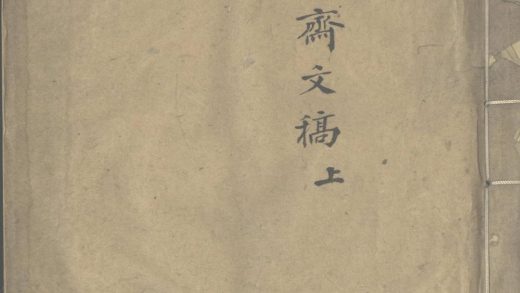 齋文稿上